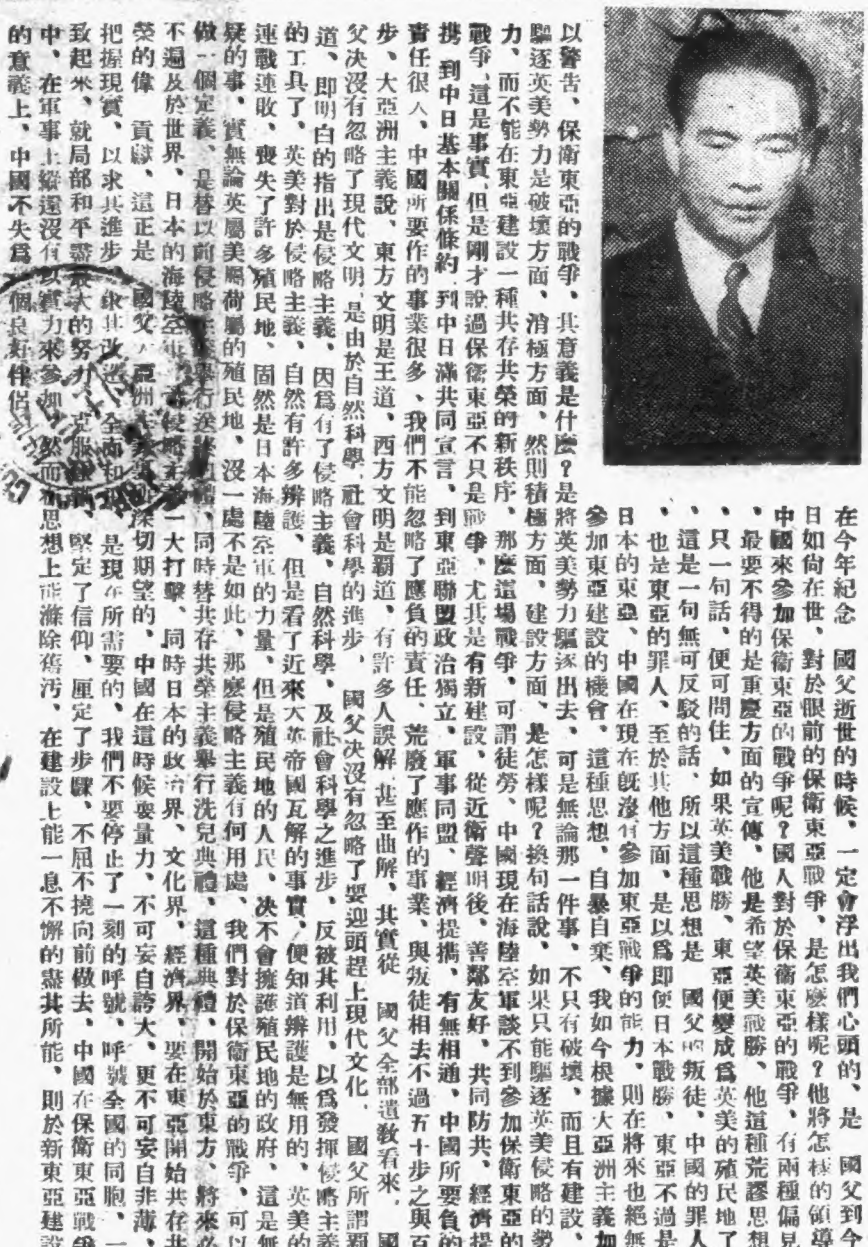 在今年紀念　國父逝世的時候、一定會浮出我們心頭的、是　國父到今
日如尙在世、對於眼前的保衞東亞戰爭、是怎麼樣呢?他將怎樣的領導
中國來參加保衞東亞的戰爭呢?國人對於保衞東亞的戰爭、有兩種偏見
、最要不得的是重慶方面的宣傳、他是希望英美戰勝、他這種荒謬思想
、只一句話、便可問住、如果英美戰勝、東亞便變成爲英美的殖民地了
、這是一句無可反駁的話、所以這種思想是　國父的叛徒、中國的罪人
、也是東亞的罪人、至於其他方面、是以爲即使日本戰勝、東亞不過是
日本的東亞、中國在現在旣沒有參加東亞戰爭的能力、則在將來也絕無
參加東亞建設的機會、這種思想、自暴自棄、我如今根據大亞洲主義加
以警告、保衞東亞的戰爭、其意義是什麼?是將英美勢力驅逐出去、可是無論那一件事、不只有破壞、而且有建設、
驅逐英美勢力是破壞方面、消極方面、然則積極方面、建設方面、是怎樣呢?換句話說、如果只能驅逐英美侵略的勢
力、而不能在東亞建設一種共存共榮的新秩序、那麼這場戰爭、可謂徒勞、中國現在海陸空軍談不到參加保衞東亞的
戰爭、這是事實、但是剛才說過保衞東亞不只是戰爭、尤其是有新建設、從近衞聲明後、善鄰友好、共同防共、經濟提
携、到中日基本關係條約、到中日滿共同宣言、到東亞聯盟政治獨立、軍事同盟、經濟提携、有無相通、中國所要負的
責任很大、中國所要作的事業很多、我們不能忽略了應負的責任、荒廢了應作的事業、與叛徒相去不過五十步之與百
步、大亞洲主義說、東方文明是王道、西方文明是霸道、有許多人誤解、甚至曲解、其實從　國父全部遺敎看來、國
父決沒有忽略了現代文明、是由於自然科學、社會科學的進步、　國父決沒有忽略了要迎頭趕上現代文化、　國父所謂覇
道、即明白的指出是侵略主義、因爲有了侵略主義、自然科學、及社會科學之進步、反被其利用、以爲發揮侵略主義
的工具了、英美對於侵略主義、自然有許多辨護、但是看了近來大英帝國瓦解的事實、便知道辨護是無用的、英美的
連戰連敗、喪失了許多殖民地、固然是日本海陸空軍的力量、但是殖民地的人民、決不會擁護殖民地的政府、這是無
疑的事、實無論英屬美屬荷屬的殖民地、沒一處不是如此、那麼侵略主義有何用處、我們對於保衞東亞的戰爭、可以
做一個定義、是替以前侵略主義舉行送終典禮、同時替共存共榮主義舉行洗兒典禮、這種典禮、開始於東方、將來必
不遍及於世界、日本的海陸空軍、予侵略主義一大打擊、同時日本的政治界、文化界、經濟界、要在東亞開始共存共
榮的偉　貢獻、這正是　國父　亞洲主義　深切期望的、中國在這時候要量力、不可妄自誇大、更不可妄自菲薄、
把握現實、以求其進步、求其改造、全面和　是現在所需要的、我們不要停止了一刻的呼號、呼號全國的同胞、一
致起來、就局部和平盡最大的努力、克服　、堅定了信仰、厘定了步驟、不屈不撓向前做去、中國在保衞東亞戰爭
中、在軍事上縱還沒有以實力來參加、然而在思想上能滌除舊汚、在建設上能一息不懈的盡其所能、則於新東亞建設
的意義上、中國不失爲一個良好伴侶